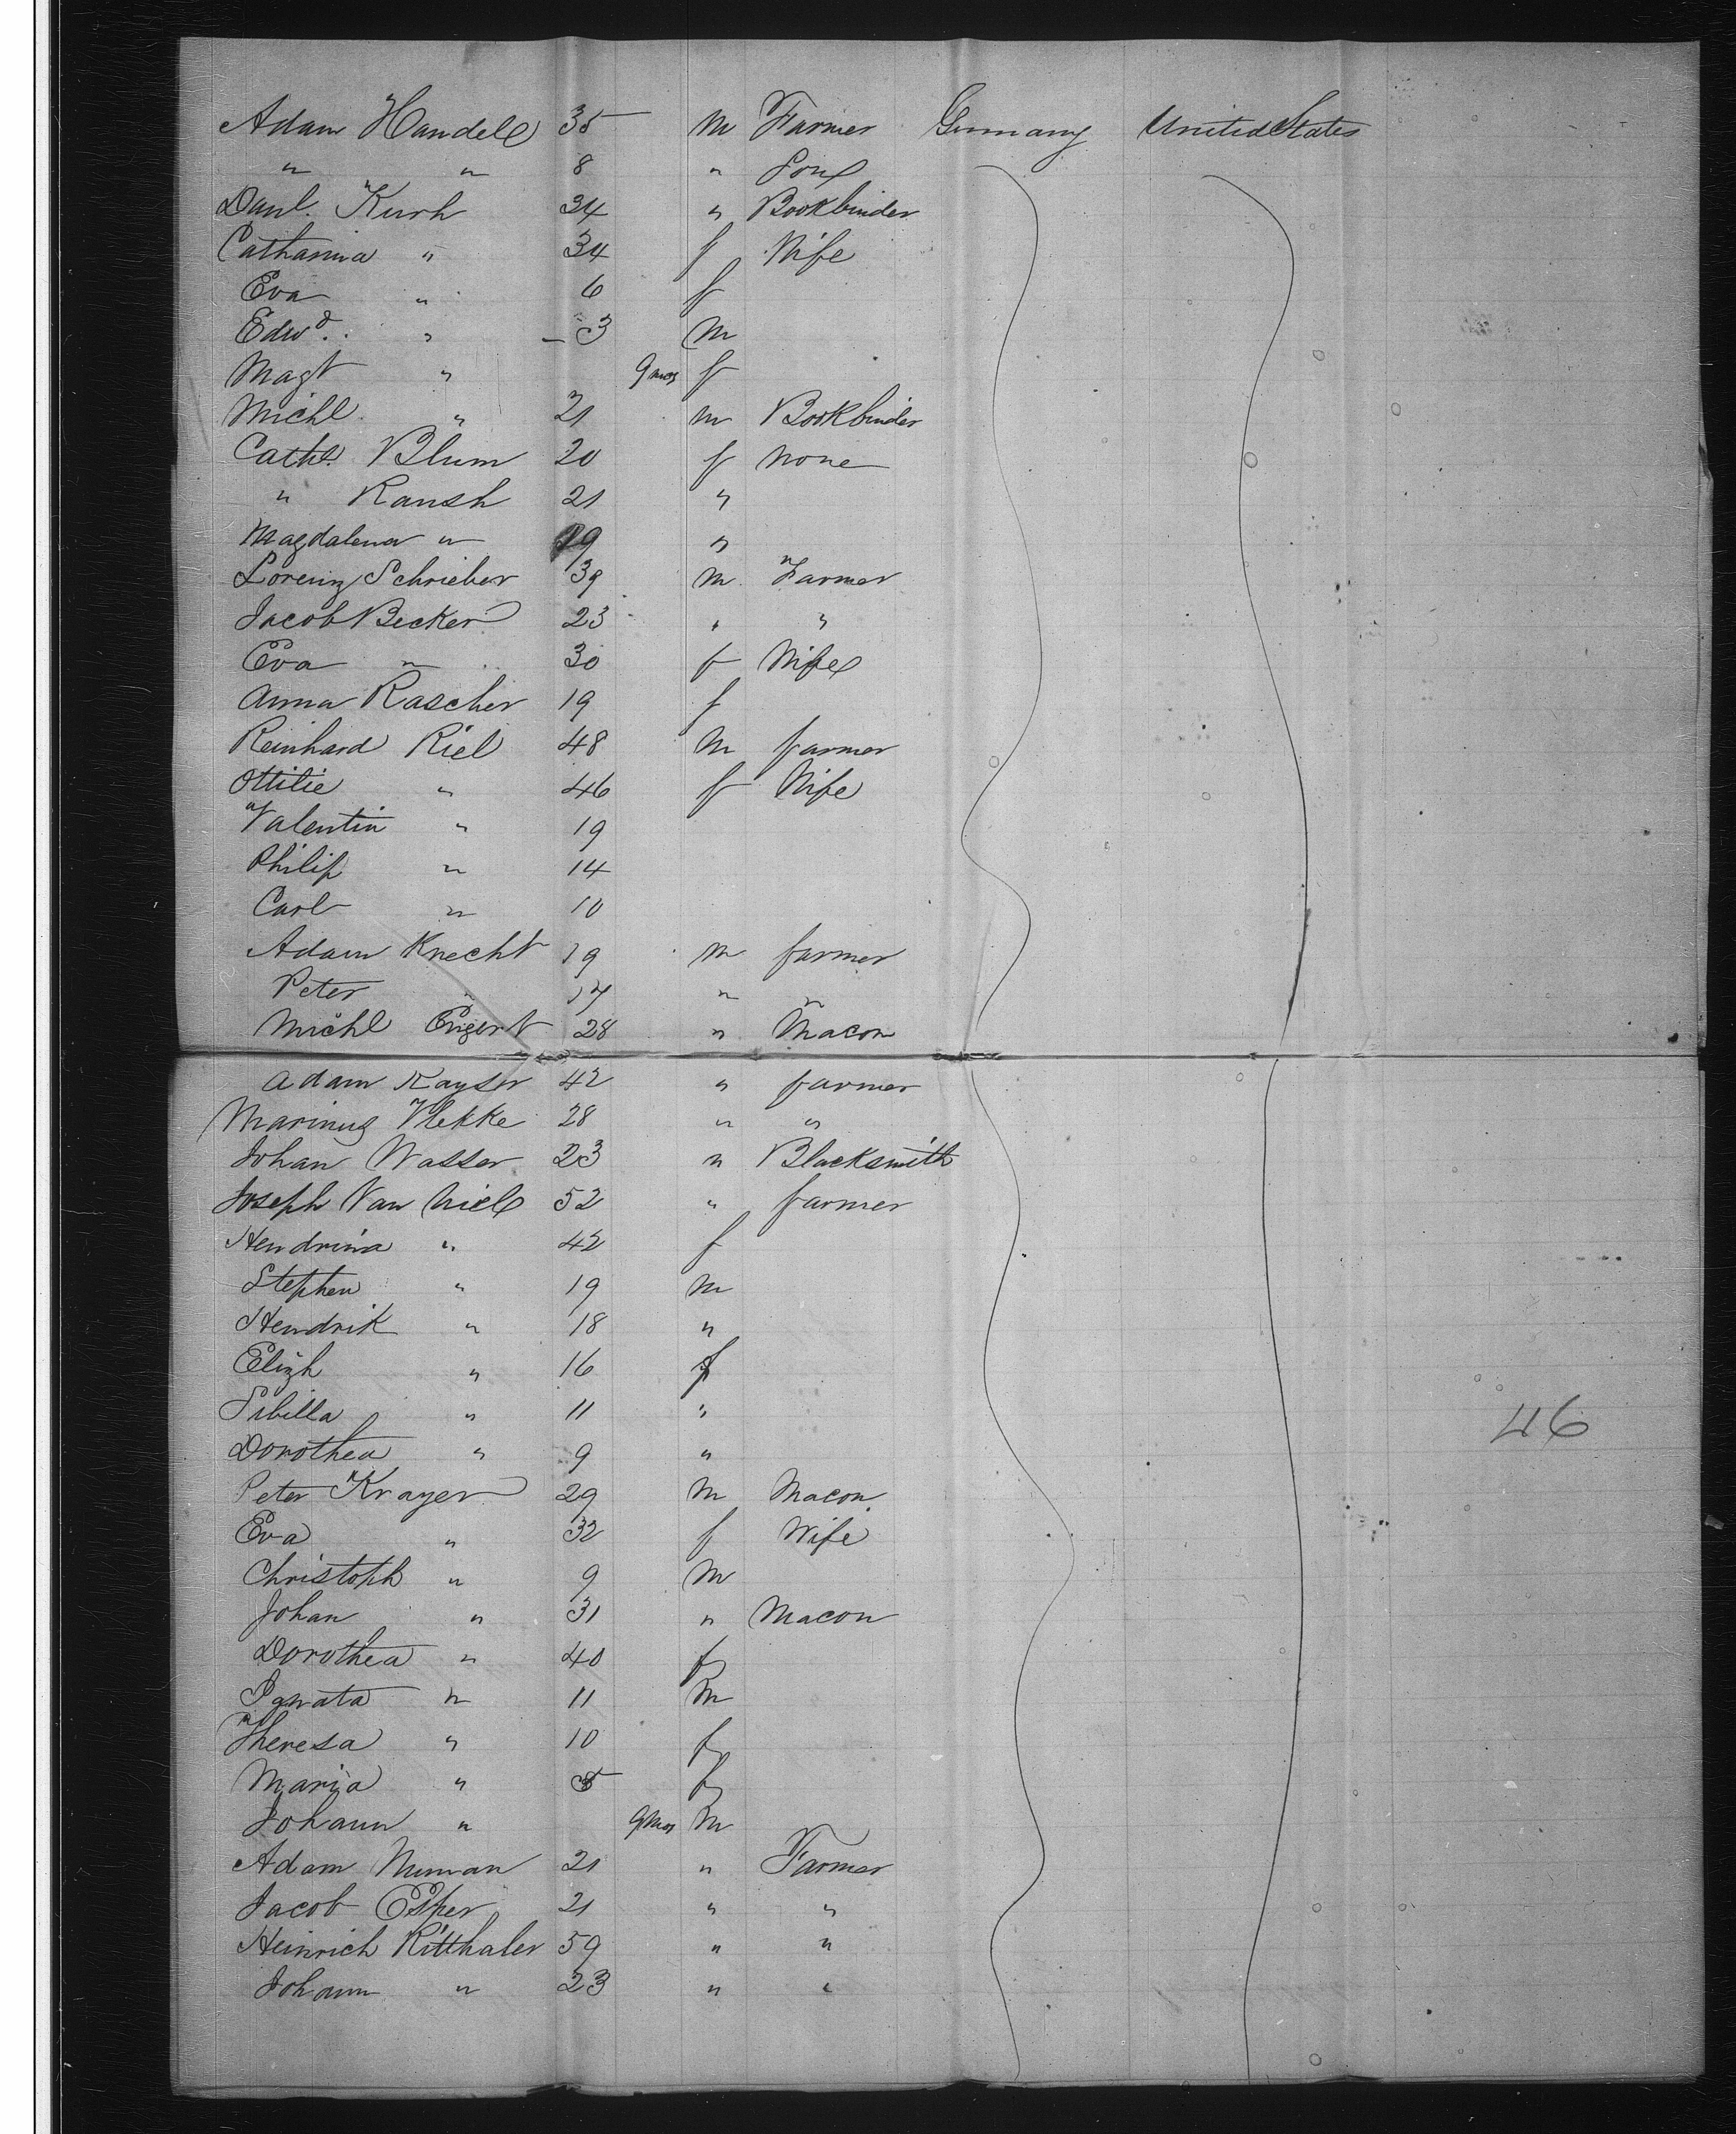 Adam Handel 35 m Farmer Germany United States
" " 8 " Son
Danl. Kurh 34 " Bookbinder
Catharina " 34 f Wife
Eva " 6 f
Edwd. " 3 m
Magt " 9 mos f
Michl. " 21 m Bookbinder
Cath. Blum 20 f none
" Raush 21 "
Magdalena " 19 "
Lorenz Schrieber 39 m Farmer
Jacob Becker 23 " "
Eva " 30 f Wife
Anna Rascher 19 f
Reinhard Riel 48 m farmer
Ottilie " 46 f Wife
Valentin " 19
Philip " 14
Carl " 10
Adam Knecht 19 m farmer
Peter " 17 " "
Michl Engert 28 " Macon
Adam Kayser 42 " farmer
Marinus Vlekke 28 " "
Johan Wasser 23 " Blacksmith
Joseph Van Niel 52 " farmer
Hendrina " 42 f
Stephen " 19 m
Hendrik " 18 "
Elizh " 16 f
Sibilla " 11 "
Dorothea " 9 "
46
Peter Krayer 29 m Macon
Eva " 32 f Wife
Christoph " 9 m
Johan " 31 " Macon
Dorothea " 40 f
" 11 m
Theresa " 10 f
Maria " f
Johann " 9 mos m
Adam Numan 21 " Farmer
Jacob Esper 21 " "
Heinrich Ritthaler 59 " "
Johann " 23 " "